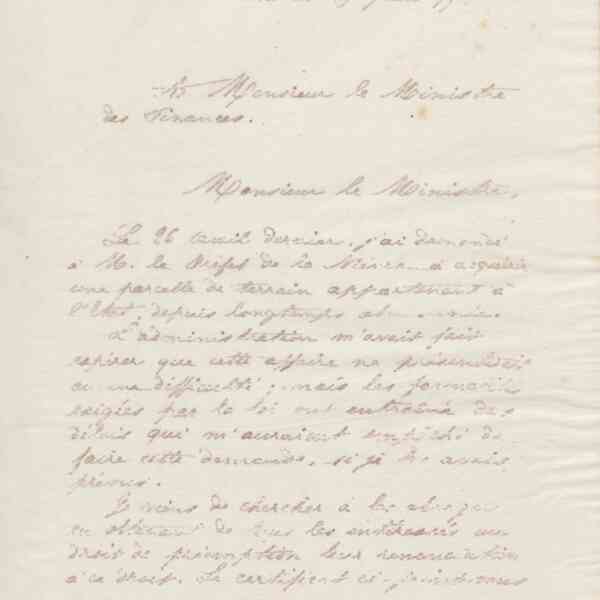 A Monsieur le Ministre
des Finances.
Monsieur le Ministre,
Le 26 avril dernier, j'ai demandé
à M. le Préfet de la Nièvre à acquérir
une parcelle de terrain appartenant à
l'Etat, depuis longtemps
L'administration m'avait fait
espérer que cette affaire ne présenterait
aucune difficulté ; mais les formalités
exigées par la loi ont entraîné des
délais qui m'auraient empêché de
faire cette demande, si je les avais
prévus.
Je viens de chercher à les abréger
en obtenant de tous les intéressés au
droit de préemption leur renonciation
à ce droit. Le certificat ci-joint vous